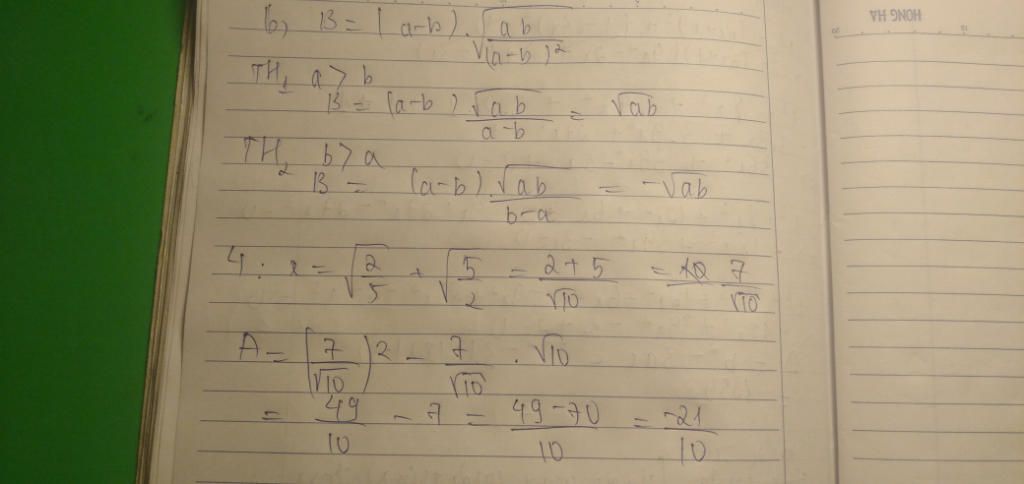 b) B = (a-b).√(ab/(a-b)²)
TH1 a > b
B = (a-b) √ab/(a-b) = √ab
TH2 b > a
B = (a-b) √ab/(b-a) = -√ab
4 : x = √(2/5) + √(5/2) = (2+5)/√10 = 7/√10
A = (7/√10)2 - 7/√10 . √10
= 49/10 - 7 = (49-70)/10 = -21/10
HONG HA